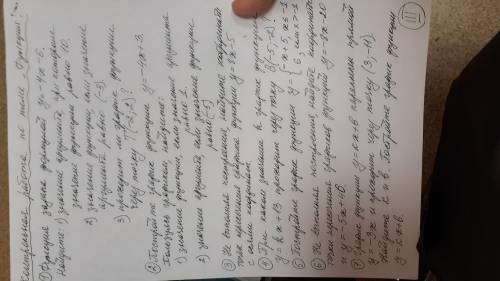 Контрольная работа по теме „Функции“.
① Функция задана формулой y = 4x - 6.
Найдите: 1) значение аргумента, при котором
значение функции равно 10.
2) значение функции, если значение
аргумента равно (-3)
3) проходит ли график функции
через точку
② Постройте график функции y = -4x + 3.
Пользуясь графиком, найдите:
1) значение функции, если значение аргумента
равно 2.
2) значение аргумента если значение функции
равно (-5)
③ Не выполняя построения, найдите координаты
точек пересечения графика функции y = 8x - 5
с осями координат.
④ При каком значении k график функции
y = kx + 13 проходит через точку B(-5; -2)?
⑤ Постройте график функции y = { -x + 5, x ≤ -1
6, если x > -1
⑥ Не выполняя построения, найдите координаты
точки пересечения графиков функций
и y = -5x + 40
⑦ График функции y = kx + b параллелен прямой
y = -3x и проходит через точку (3; -11).
Найдите k и b. Постройте график функции
y = kx + b.
III